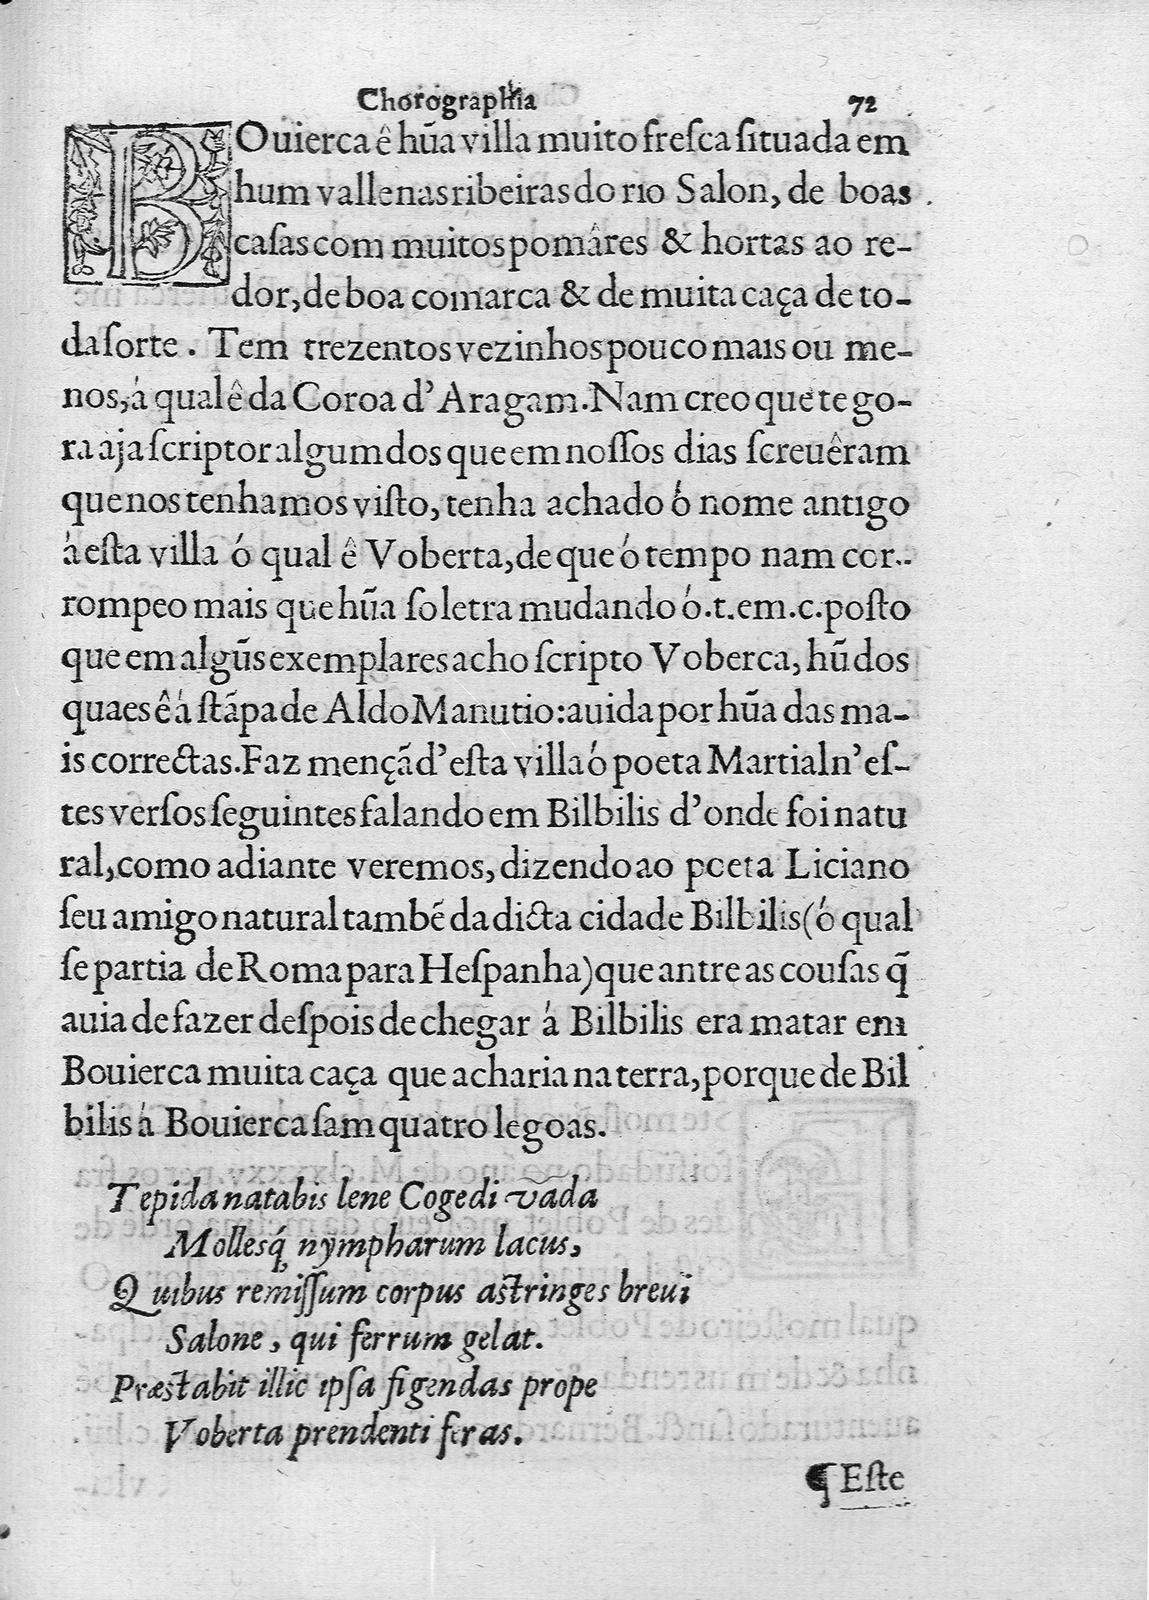 Chorographia 72
BOuierca ê hũa villa muito freſca ſituada em
hum valle nas ribeiras do rio Salon, de boas
caſas com muitos pomâres & hortas ao re-
dor, de boa comarca & de muita caça de to-
da ſorte. Tem trezentos vezinhos pouco mais ou me-
nos, á qual ê da Coroa d'Aragam. Nam creo que tego-
ra aja ſcriptor algum dos que em noſſos dias ſcreuêram
que nos tenhamos viſto, tenha achado ó nome antigo
á eſta villa ó qual ê Voberta, de que ó tempo nam cor-
rompeo mais que hũa ſo letra mudando ó .t. em .c. poſto
que em algũs exemplares acho ſcripto Voberca, hũ dos
quaes ê á ſtãpa de Aldo Manutio: auida por hũa das ma-
is correctas. Faz mençã d'eſta villa ó poeta Martial n'eſ-
tes verſos ſeguintes falando em Bilbilis d'onde foi natu
ral, como adiante veremos, dizendo ao poeta Liciano
ſeu amigo natural tambẽ da dicta cidade Bilbilis (ó qual
ſe partia de Roma para Heſpanha) que antre as couſas q̃
auia de fazer deſpois de chegar á Bilbilis era matar em
Bouierca muita caça que acharia na terra, porque de Bil
bilis á Bouierca ſam quatro legoas.
Tepida natabis lene Cogedi vada
Molleſq́; nympharum lacus,
Quibus remiſſum corpus aſtringes breui
Salone, qui ferrum gelat.
Præſtabit illic ipſa figendas prope
Voberta prendenti feras.
¶ Eſte